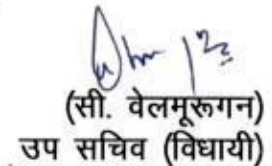 (सी. वेलमूरूगन)
उप सचिव (विधायी)